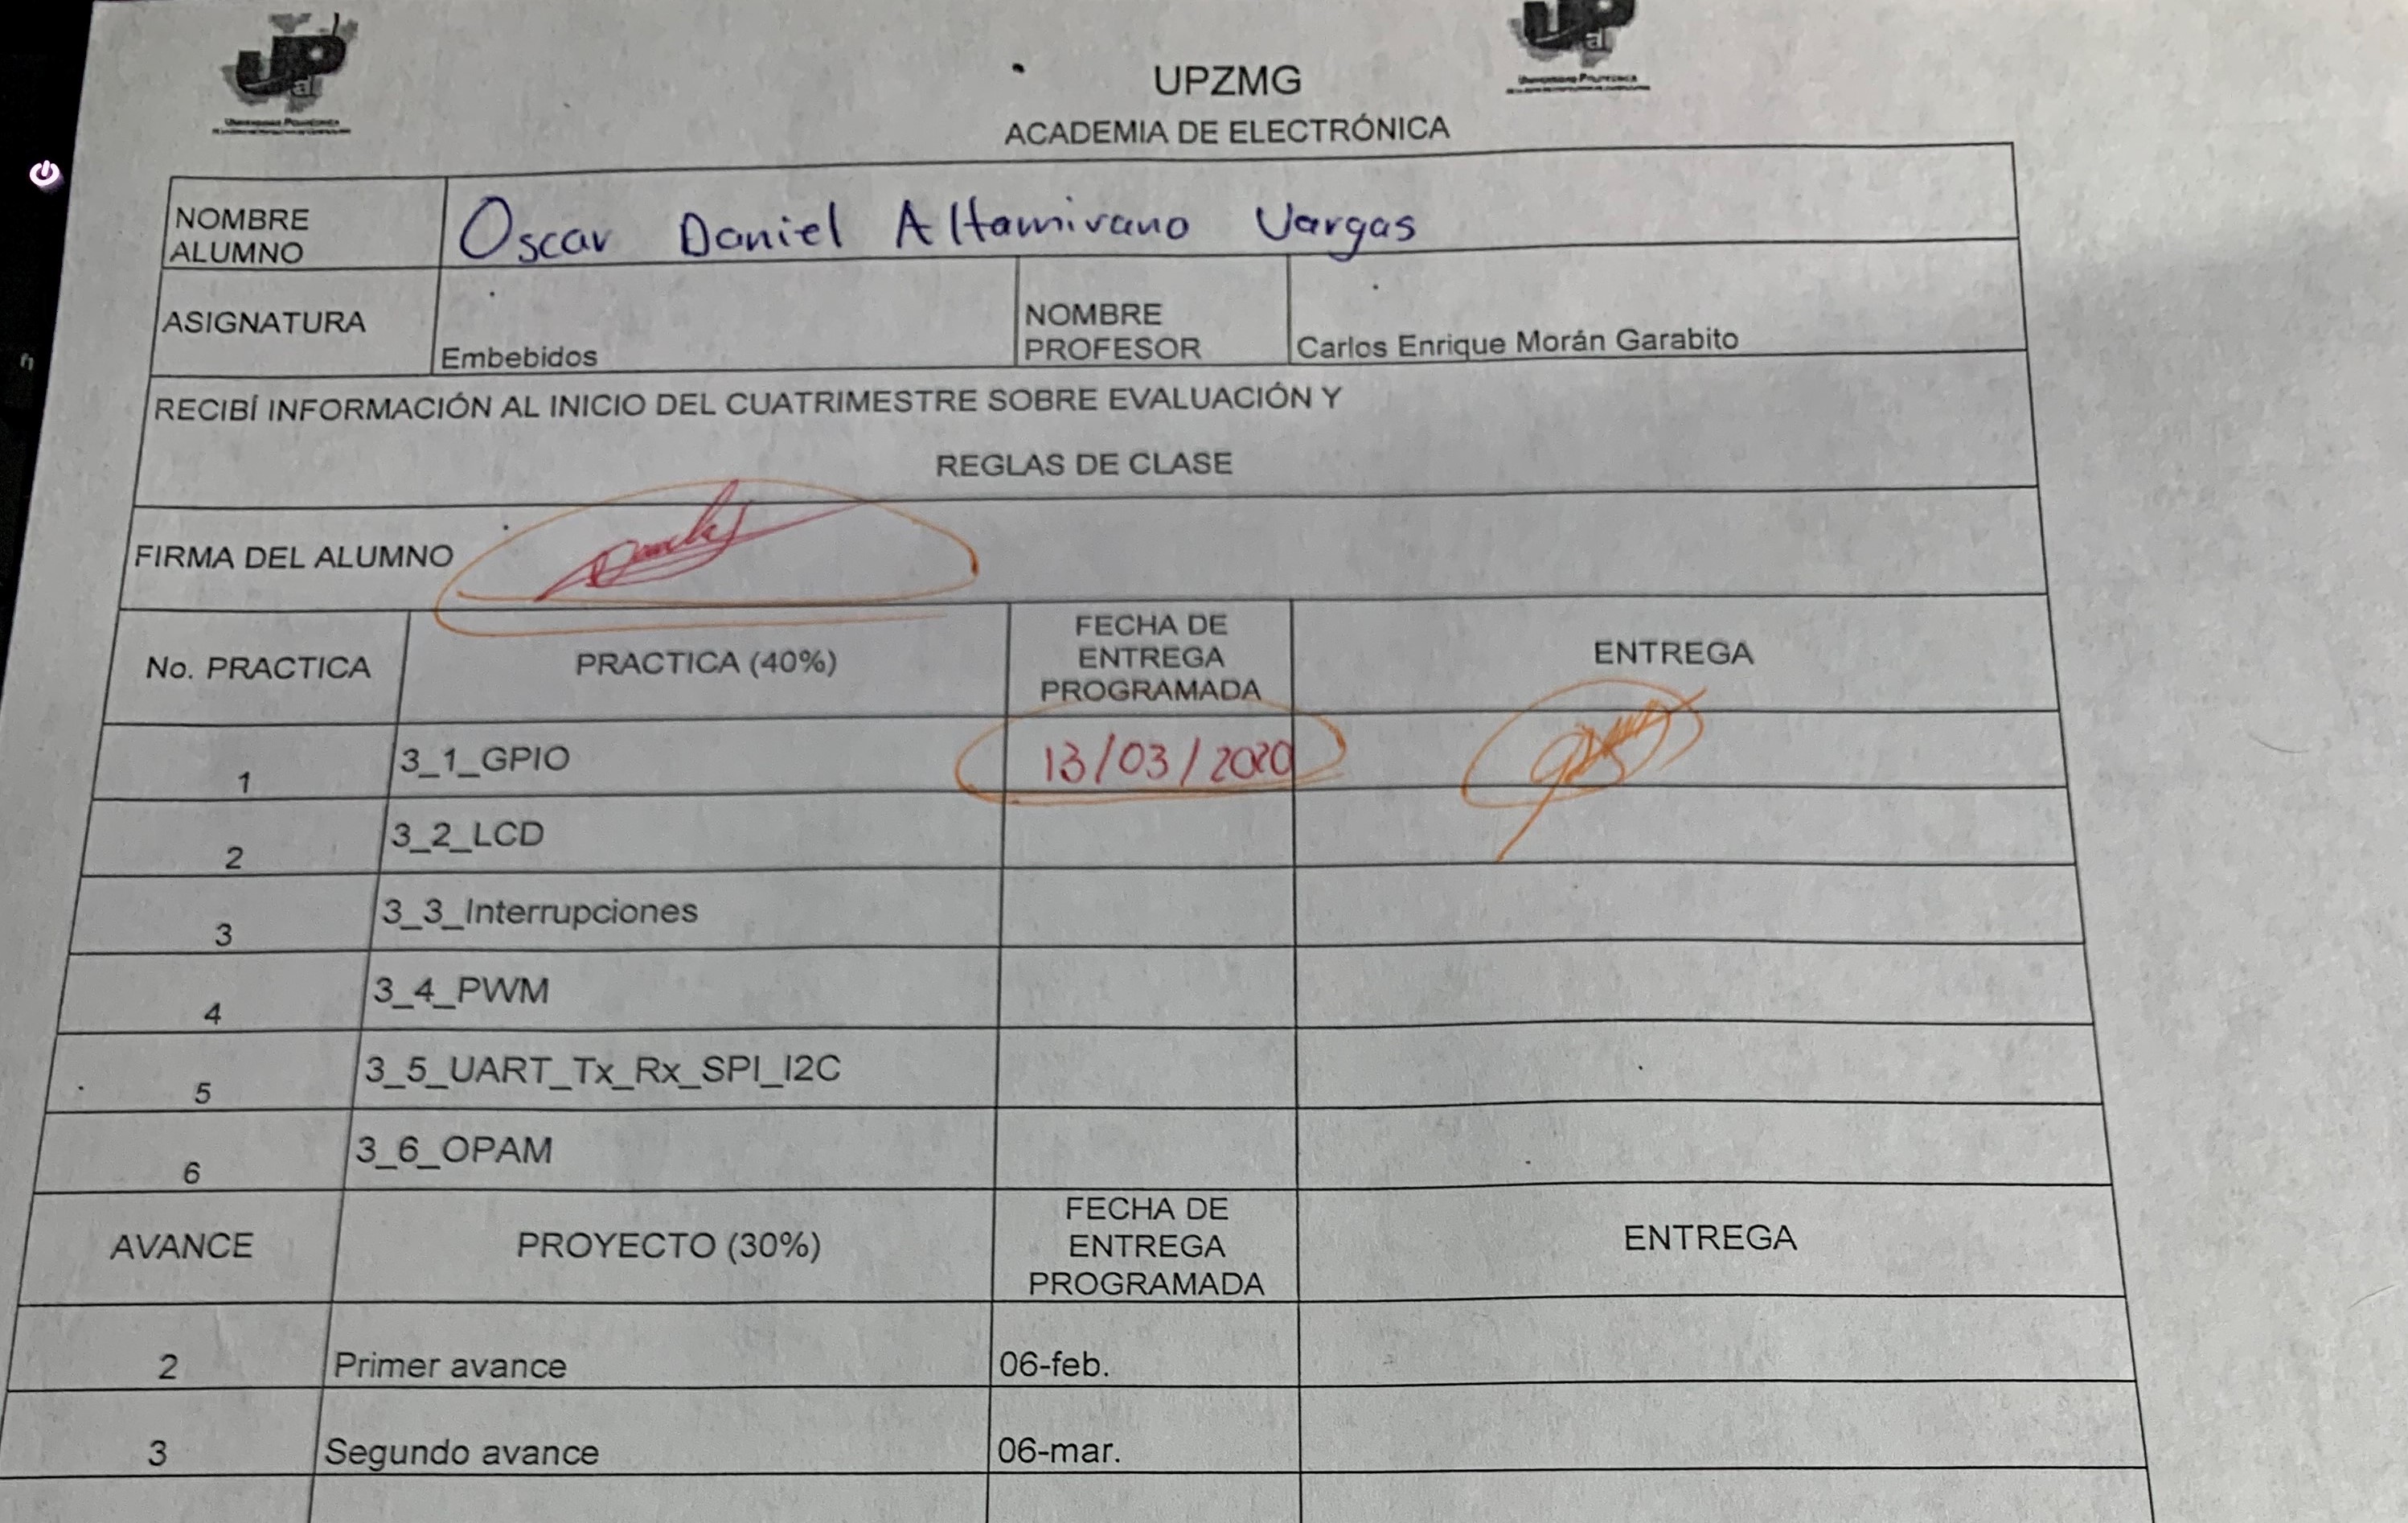 UP
al
UP
al
UPZMG
ACADEMIA DE ELECTRÓNICA
NOMBRE
ALUMNO
Oscar Daniel Altamirano Vargas
ASIGNATURA
Embebidos
NOMBRE
PROFESOR
Carlos Enrique Morán Garabito
RECIBÍ INFORMACIÓN AL INICIO DEL CUATRIMESTRE SOBRE EVALUACIÓN Y
REGLAS DE CLASE
FIRMA DEL ALUMNO
No. PRACTICA
PRACTICA (40%)
FECHA DE
ENTREGA
PROGRAMADA
ENTREGA
1
3_1_GPIO
13/03/2020
2
3_2_LCD
3
3_3_Interrupciones
4
3_4_PWM
5
3_5_UART_Tx_Rx_SPI_I2C
6
3_6_OPAM
AVANCE
PROYECTO (30%)
FECHA DE
ENTREGA
PROGRAMADA
ENTREGA
2
Primer avance
06-feb.
3
Segundo avance
06-mar.